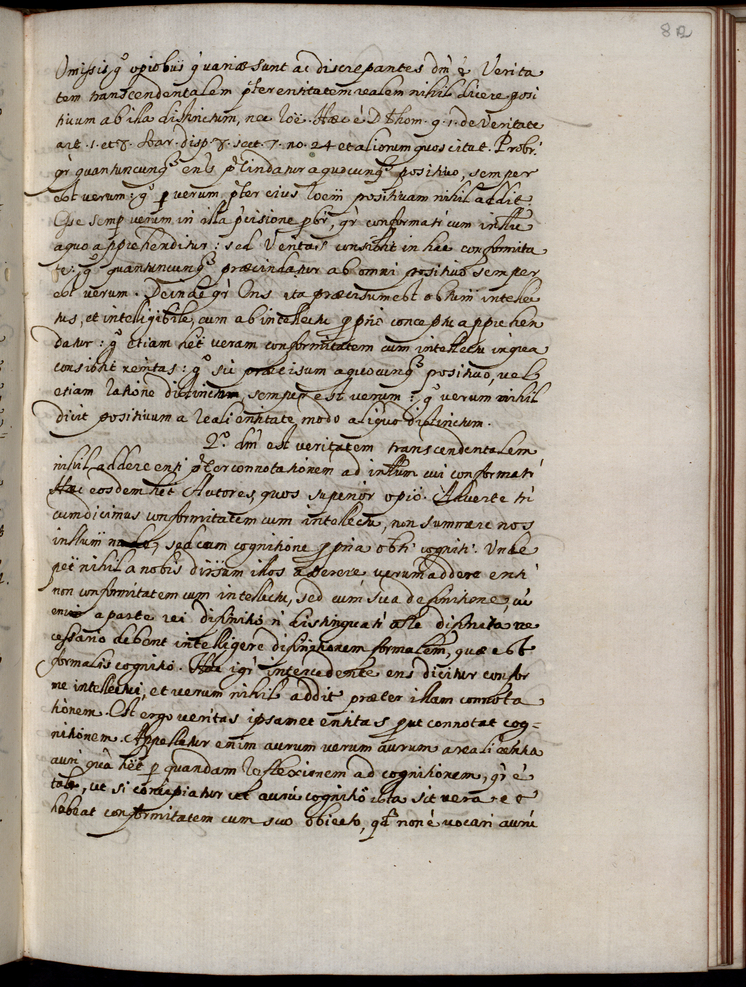 82
Omissis g° opiobus q̃ variæ sunt ac discrepantes dm̃ é Verita
tem transcendentalem p̃ter entitatem realem nihil dicere posi
tiuum ab illa distinctum, nec Hæc é D Thom. q. 1. de Veritate
art. 1. et 8. disp. 8. sect. 7. no. 24 et aliorum quos citat. Probr̃
qr̃ quantuncunq̃ ens p̃scindatur a quocunq̃ positiuo, semper
est verum: g° verum p̃ter eius positiuam nihil addit
Esse semp verum in illa p̃cisione qr̃ conformatr̃ cum
a quo apprehenditur: sed Veritas consistit in hac conformita
te: g° quantuncunq̃ præcindatur ab omni positiuo semper
est verum. Deinde qr̃ Ens ita præcisum est intellec
tus, et intelligibile, cum ab intellectu p priõ conceptu apprehen
datur: g° etiam hẽt veram conformitatem cum intellectu in qua
consistit veritas: g° sic præcisum a quocunq̃ positiuo, vel
etiam ratione distinctum, semper est verum: g° verum nihil
dicit positiuum a reali entitate modo aliquo distinctum.
2° dm̃ est veritatem transcendentalem
nihil addere enti p̃ter connotationem ad cui conformatr̃
Hæc eosdem hẽt Autores, quos superior opiõ. Aduerte tñ
cum dicimus conformitatem cum intellectu, non summere nos
sed cum cognitione p pria obti cogniti. Unde
nihil a nobis illos asserere verum addere enti
non conformitatem cum intellectu, sed cum sua definitione,
enim a parte rei difinitio ñ distinguatr̃ difinito ne
cessario debent intelligere difinitionem formalem, quæ est
formalis cognitio. Hac igr̃ intercedente ens dicitur confor
me intellectui, et verum nihil addit præter illam connota
tionem. Est ergo veritas ipsamet entitas p̱ut connotat cog=
nitionem. Appellatur enim aurum verum aurum a reali entita
auri quã hẽt p quandam reflexionem ad cognitionem, qr̃ é
tale, ut si concipiatur ut aurũ cognitiõ ista sit vera, et
habeat conformitatem cum suo obiecto, non é vocari aurũ